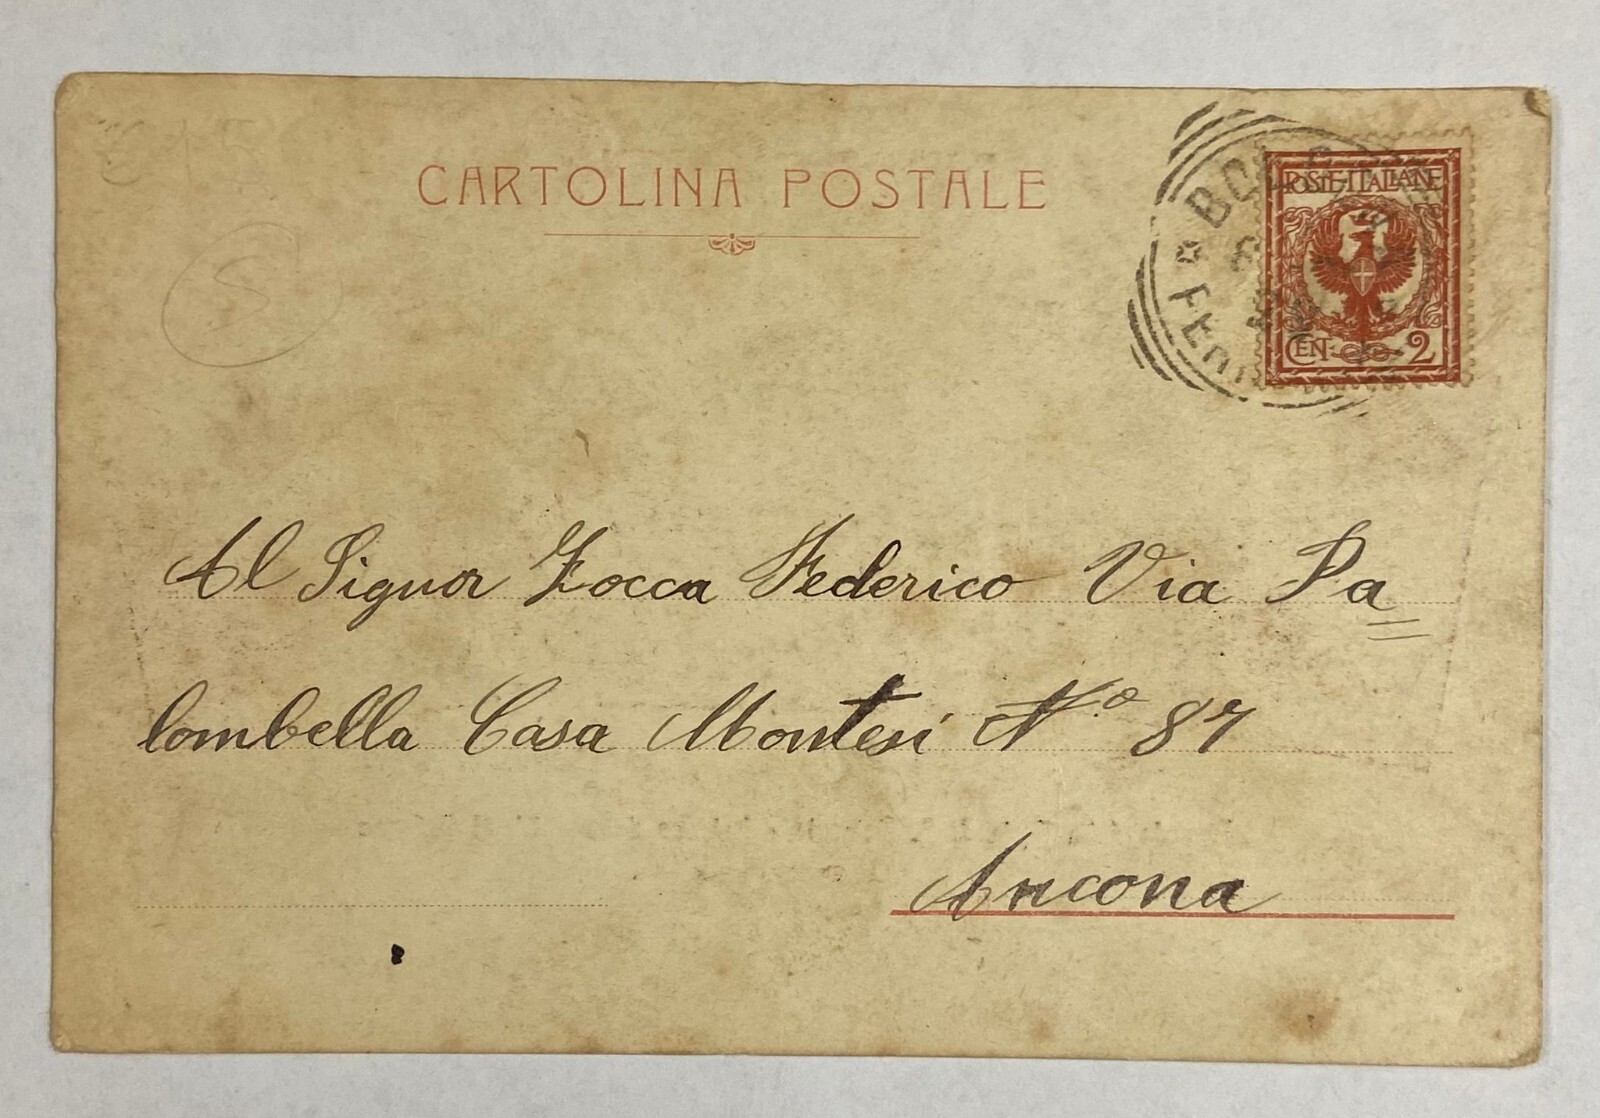 CARTOLINA POSTALE
POSTE·ITALIANE
CEN· 2
S
Al Signor Zocca Federico Via Pa
lombella Casa Montesi Nº 87
Ancona